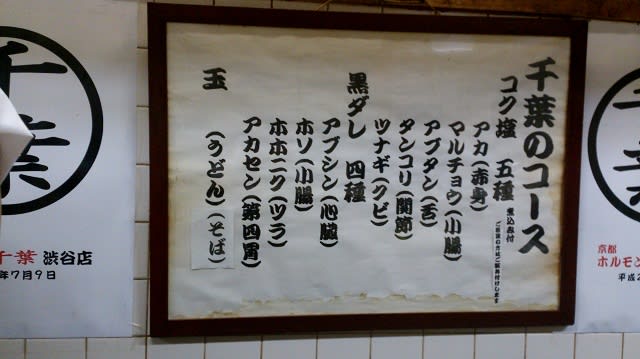 千葉のコース
コク塩 五種
煮込み付
アカ(赤身)
マルチョウ(小腸)
アブタン(舌)
タンコリ(関節)
ツナギ(クビ)
黒ダレ 四種
アブシン(心臓)
ホソ(小腸)
ホホニク(ツラ)
アカセン(第四胃)
玉 (うどん)(そば)
千葉
千葉 渋谷店
年7月9日
千葉
京都
ホルモ
平成2